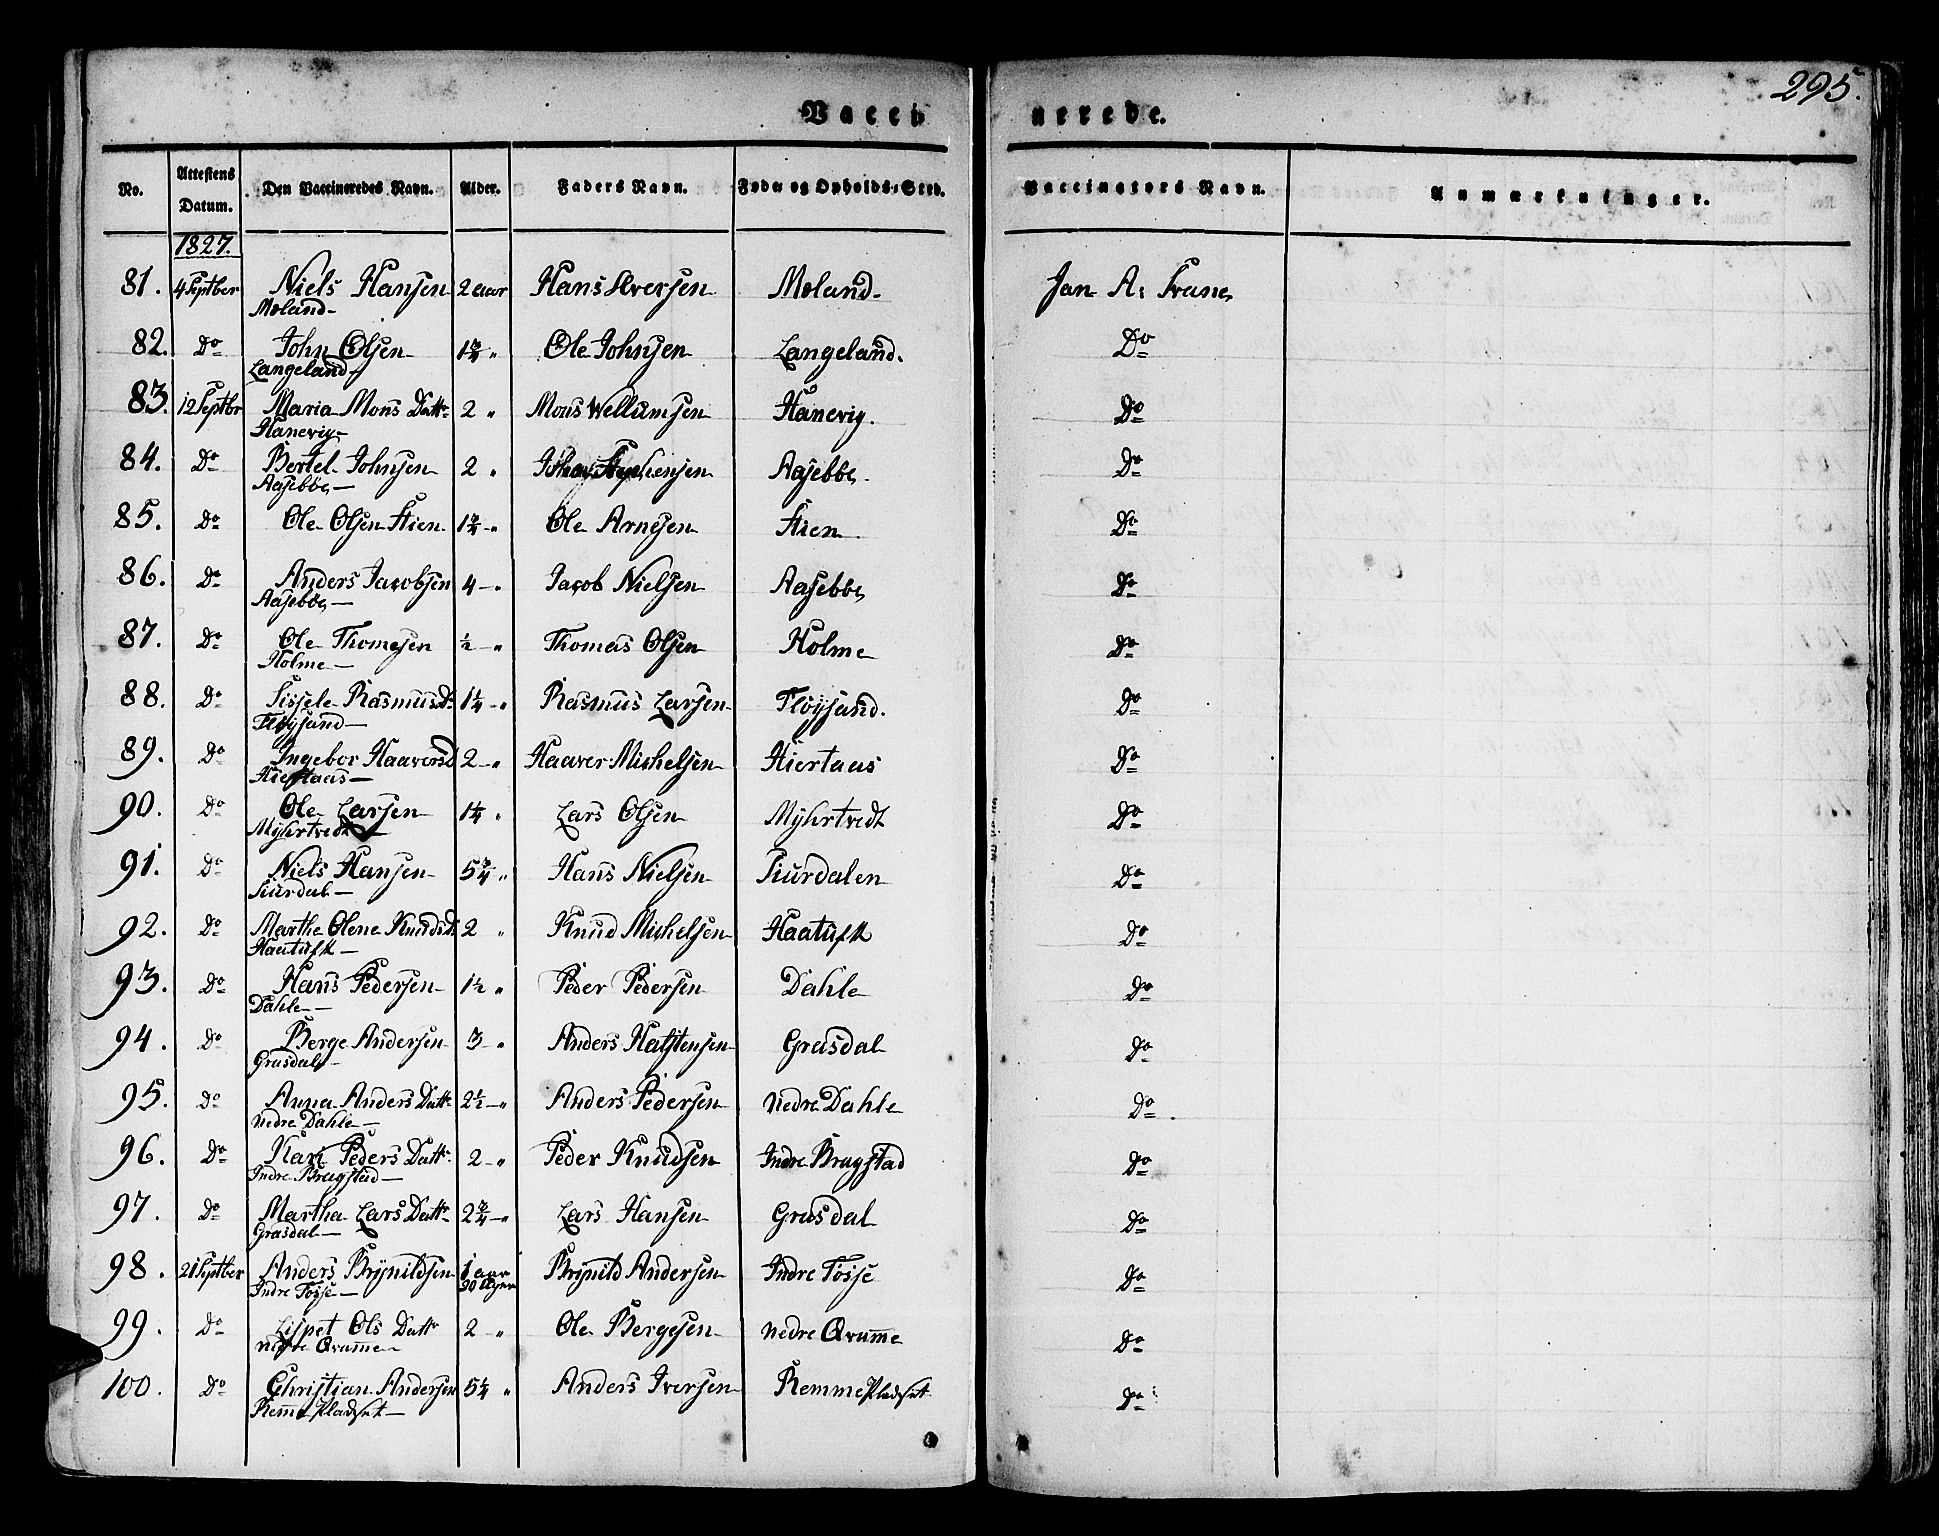 295.
Vacci nerede.
No. Attestens Datum. Den Vaccineredes Navn. Alder. Faders Navn. Føde og Opholds-Sted. Vaccinateurs Navn. Anmærkninger.
1827.
81. 4 Septber Niels Hansen 2 aar Hans Iversen Moland Jan A: Trane
Moland
82. Do John Olsen 1¾ " Ole Johnsen Langeland. Do
Langeland
83. 12 Septbr Maria Mons Dattr 2 " Mons Wellumsen Hanevig. Do
Hanevig
84. Do Bertel Johnsen 2 " Aasebøe Do
Aasebøe
85. Do Ole Olsen Stien 1¾ " Ole Arnesen Stien Do
86. Do Anders Jacobsen 4 " Jacob Nielsen Aasebøe Do
Aasebøe
87. Do Ole Thomesen ½ " Thomas Olsen Holme Do
Holme
88. Do Sissele Rasmusd: 1¼ " Rasmus Larsen Fløysand. Do
Fløysand
89. Do Ingebor Haaversd 2 " Haaver Michelsen Hiertaas Do
Hiertaas
90. Do Ole Larsen 1¼ " Lars Olsen Myhrtvedt Do
Myhrtvedt
91. Do Niels Hansen 5¾ " Hans Nielsen Siurdalen Do
Siurdal
92. Do Marthe Olene Knudsd: 2 " Knud Michelsen Haatuft Do
Haatuft
93. Do Hans Pedersen 1½ " Peder Pedersen Dahle Do
Dahle
94. Do Berge Andersen 3 " Anders Halstensen Grasdal Do
Grasdal
95. Do Anna Anders Dattr 2½ " Anders Pedersen Nedre Dahle Do
Nedre Dahle
96. Do Kari Peders Dattr 2 " Peder Knudsen Indre Bragstad Do
Indre Bragstad
97. Do Martha Lars Dattr 2¾ " Lars Hansen Grasdal Do
Grasdal
98. 21 Septber Anders Brynildsen 1 aar 30 Uger Brynild Andersen Indre Tosse Do
Indre Tosse
99. Do Lispet Ols Dattr 2 " Ole Bergesen Nedre Qvamme Do
Nedre Qvamme
100. Do Christian Andersen 5¼ " Anders Iversen Remme Pladset Do
Remme Pladset